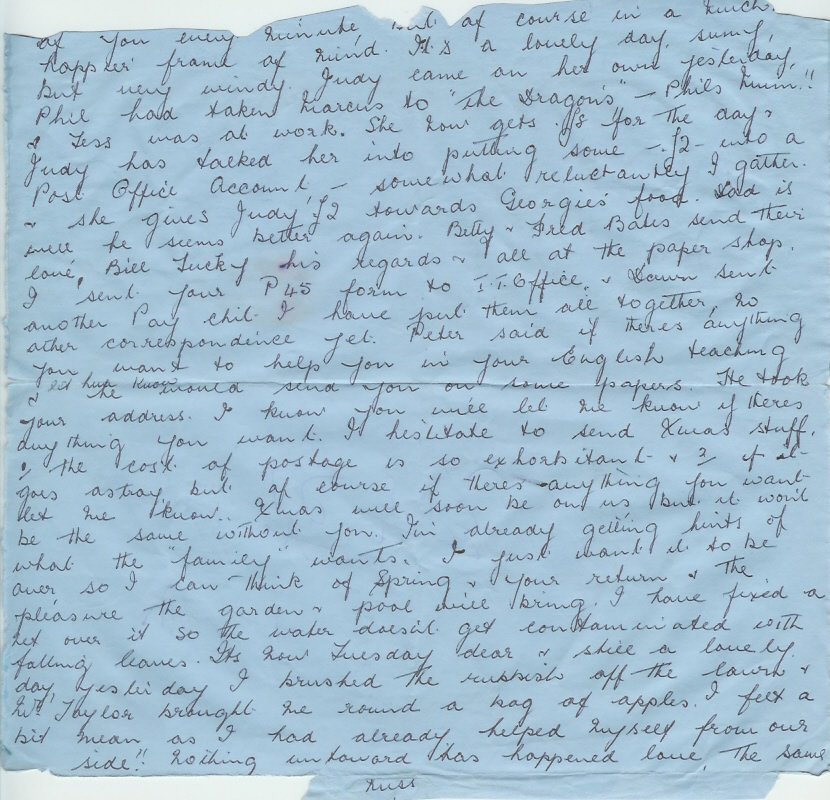 of you every minute, but of course in a much
happier frame of mind. It's a lovely day, sunny,
but very windy. Judy came on her own yesterday,
Phil had taken Marcus to "the Dragon's" – Phils Mum!!
& Tess was at work. She now gets for the day &
Judy has talked her into putting some – £2 – into a
Post Office Account – somewhat reluctantly I gather.
& she gives Judy £2 towards Georgie's food. Dad is
well he seems better again. Betty & Fred Bates send their
love, Bill Tucky his regards & all at the paper shop.
I sent your P45 form to I.T. Office, & Dawn sent
another Pay chit. I have put them all together, no
other correspondence yet. Peter said if theres anything
you want to help you in your English teaching
& he would send you on some papers. He took
your address. I know you will let me know if theres
anything you want. I hesitate to send Xmas stuff,
the cost of postage is so exhorbitant & ? if it
goes astray, but of course if theres anything you want
let me know. Xmas will soon be on us but it won't
be the same without you. I'm already getting hints of
what the "family" wants. I just want it to be
over so I can think of Spring & your return & the
pleasure the garden & pool will bring. I have fixed a
net over it so the water doesn't get contaminated with
falling leaves. Its now Tuesday dear & still a lovely
day, yesterday I brushed the rubbish off the lawn &
Mr Taylor brought me round a bag of apples. I felt a
bit mean as I had already helped myself from our
side!! Nothing untoward has happened love, the same
miss